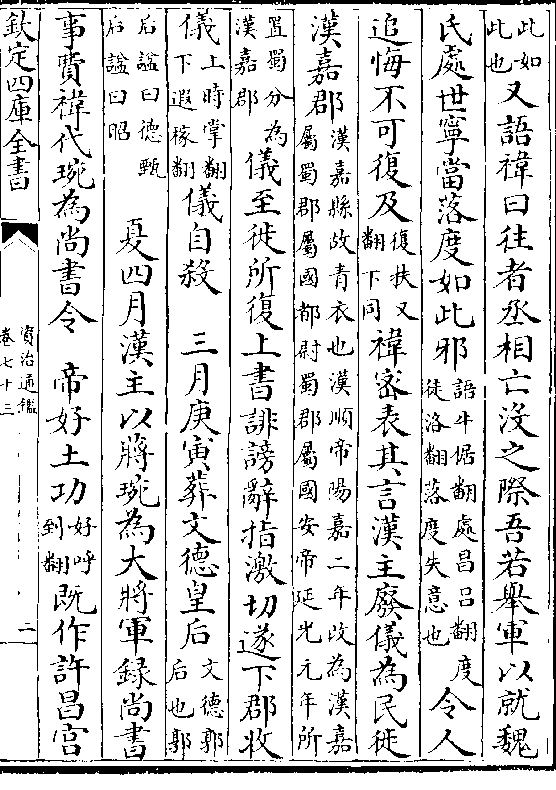 此如此也又語禕曰往者丞相亡沒之際吾若舉軍以就魏
氏處世寧當落度如此邪語牛倨翻處昌呂翻度徒洛翻落度失意也令人
追悔不可復及復扶又翻下同禕密表其言漢主廢儀為民徙
漢嘉郡漢嘉縣故青衣也漢順帝陽嘉二年改為漢嘉屬蜀郡屬國都尉蜀郡屬國安帝延光元年所
置蜀分為漢嘉郡儀至徙所復上書誹謗辭指激切遂下郡收
儀上時掌翻下遐稼翻儀自殺 三月庚寅葬文德皇后文德郭后也郭
后諡曰德甄后諡曰昭 夏四月漢主以蔣琬為大將軍錄尚書
事費禕代琬為尚書令 帝好土功好呼到翻既作許昌宮
欽定四庫全書
資治通鑑
卷七十三
二